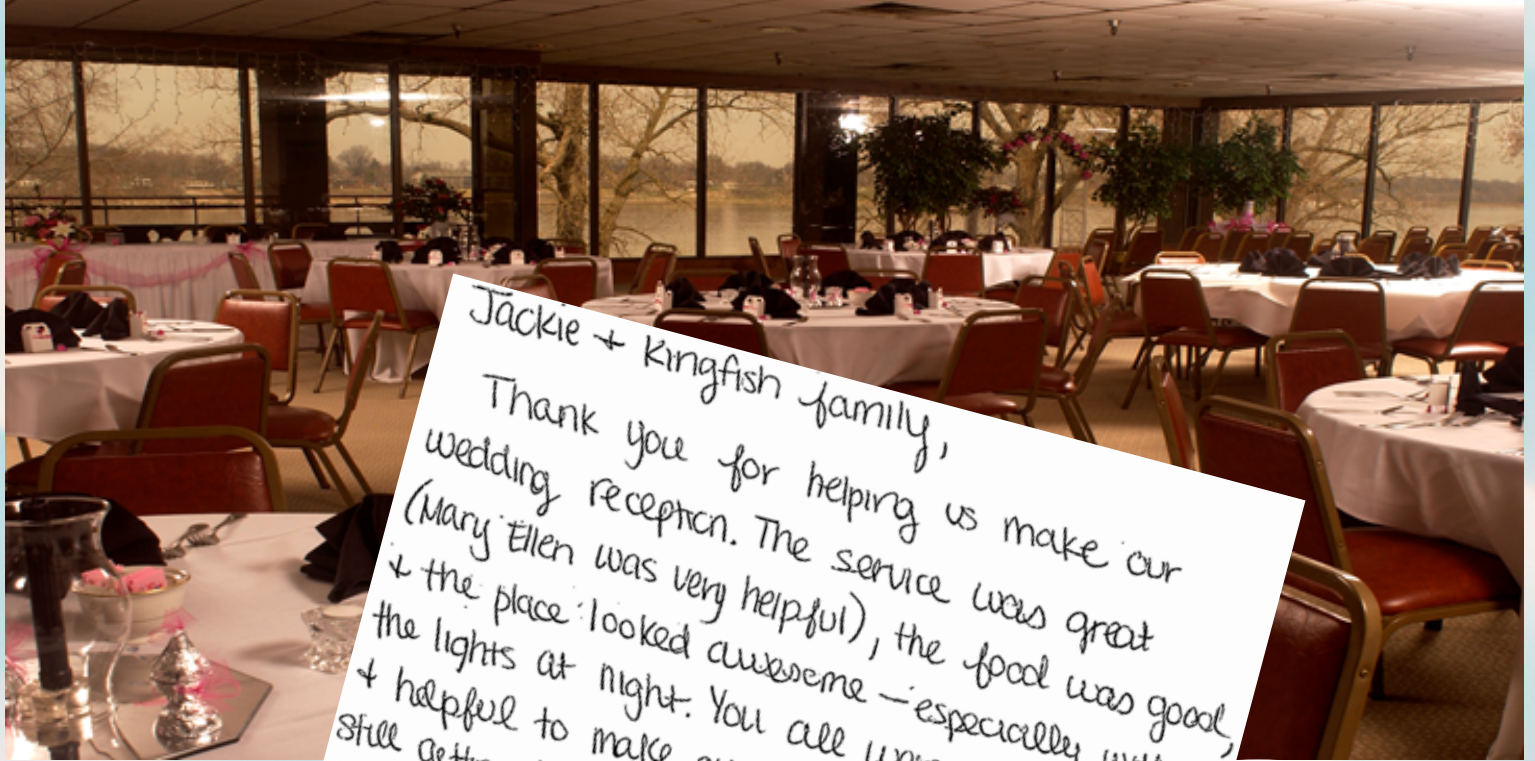 Jackie + Kingfish family,
Thank you for helping us make our
wedding reception. The service was great
(Mary Ellen was very helpful), the food was good,
+ the place looked awesome - especially with
the lights at night. You all
+ helpful to make
still